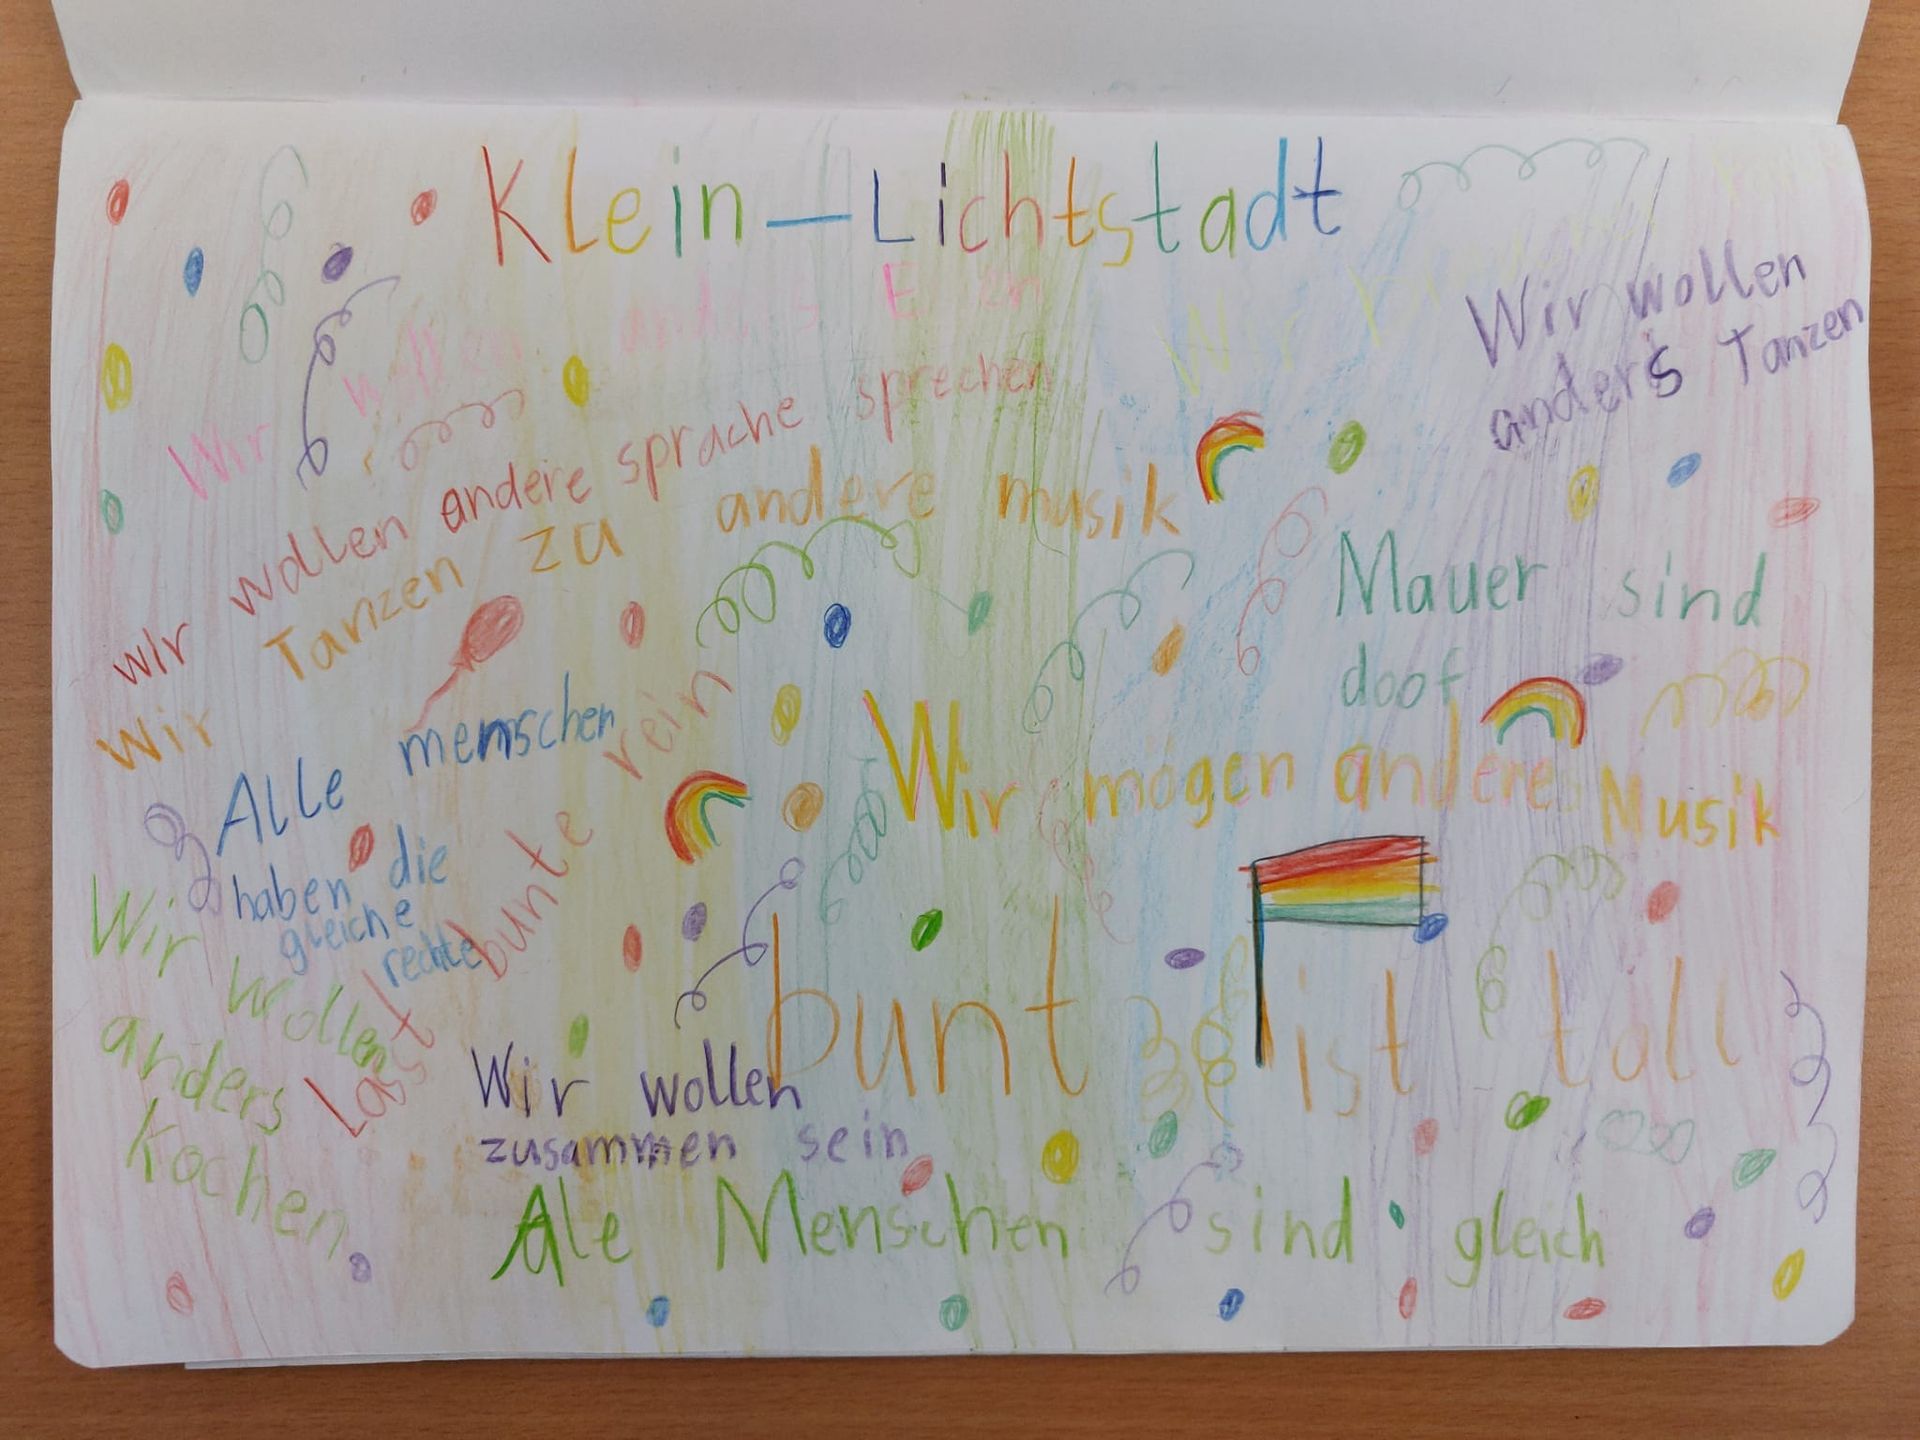 Klein-Lichtstadt
Wir wollen anders E en
Wir
Wir wollen
anders Tanzen
wir wollen andere sprache sprechen
Wir Tanzen zu andere musik
Mauer sind
doof
Alle menschen
haben die
gleiche
rechte
Wir mögen andere Musik
Lasst bunte rein
Wir wollen
anders
Kochen
bunt ist toll
Wir wollen
zusammen sein
Alle Menschen sind gleich